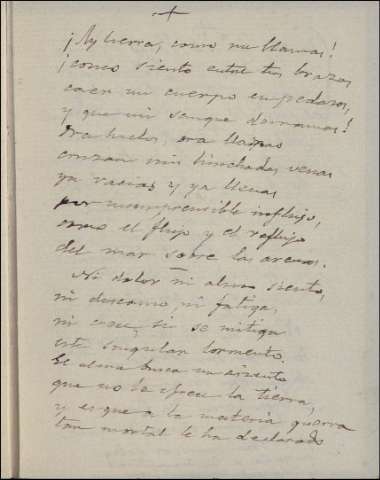 ¡Ay tierra, como me llamas!
¡como siento entre tus brazos
caer mi cuerpo en pedazos,
y que mi sangre derramas!
Ora hielos, ora llamas
cruzan mis hinchadas venas
ya vacias y ya llenas
por incomprensible influjo,
como el flujo y el reflujo
del mar sobre las arenas.
Ni dolor ni alivio siento,
ni descanso, ni fatiga,
ni crece, ni se mitiga
este singular tormento.
El alma busca un asiento
que no le ofrece la tierra,
y es que a la materia guerra
tan mortal le ha declarado